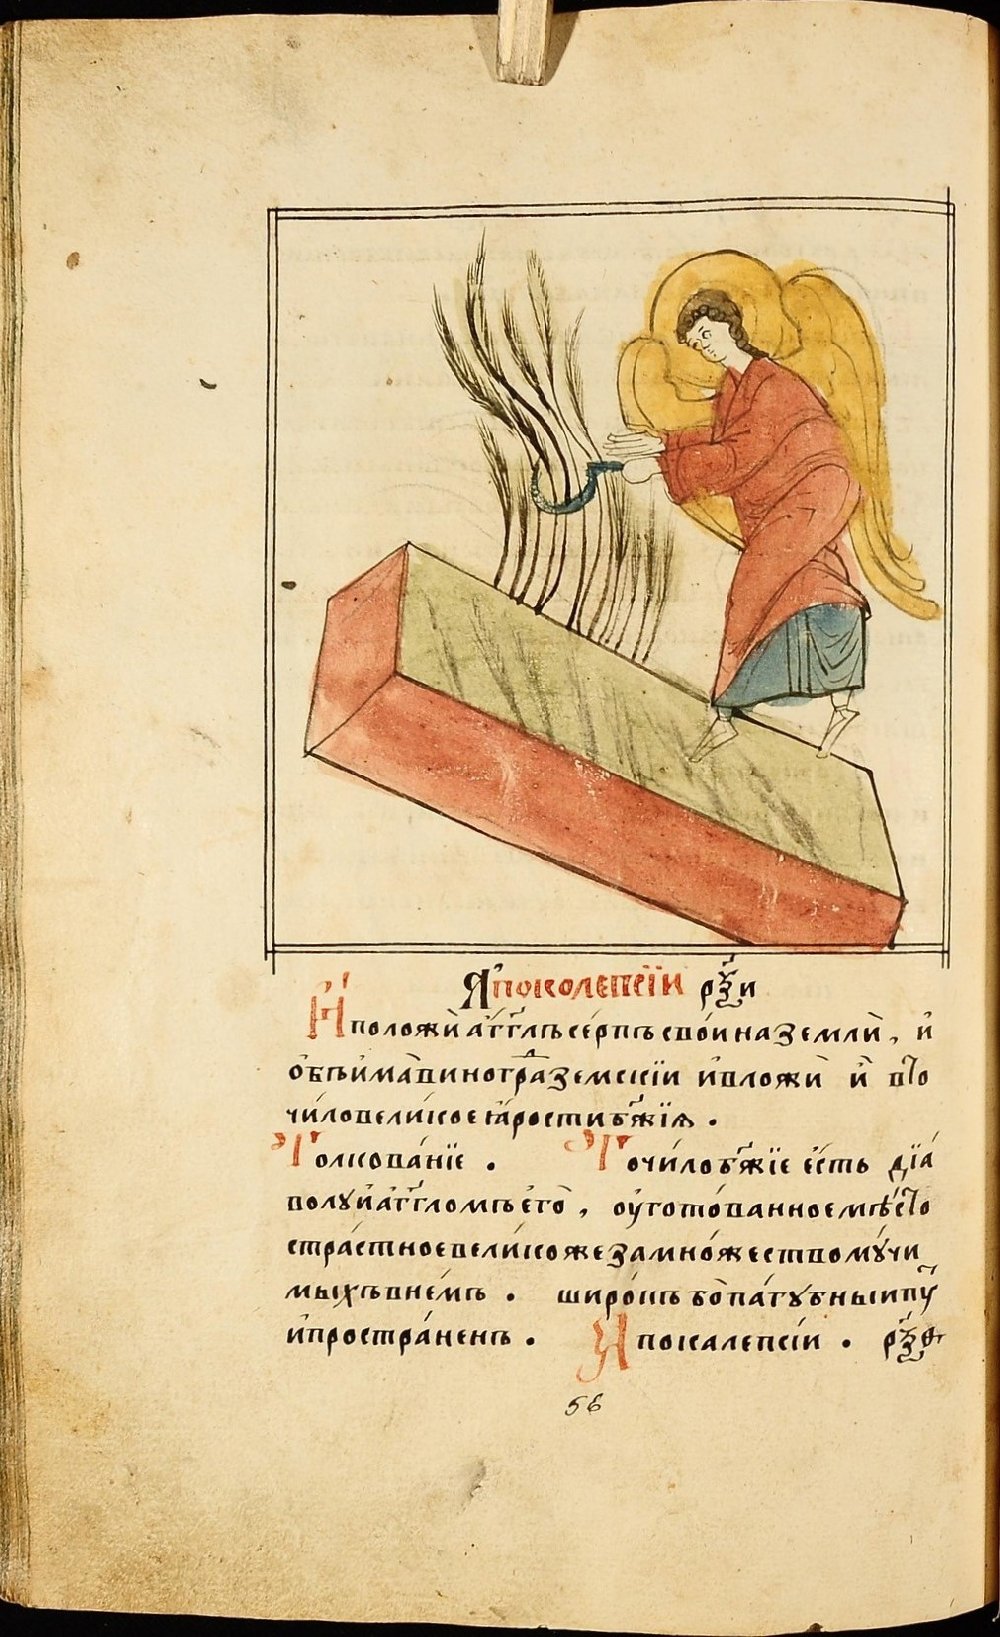 Я҆поколепсїи рѯ҃и
И҆ положи̏ а҆́гг҃лъ се́рпъ сво́и на землѝ, и҆
ѻ҆бъи҆ма̀ виногрⷣа земскїи и҆вложѝ и҆̀ вто
чи́ло вели́кое ꙗ҆́рости бж҃їѧ .
Толкова́нїе . Точи́ло бж҃їе є҆́сть дїа́
волу и҆ а҆́гг҃ломъ є҆го̀, оу҆гото́ванное мѣ́сто
стра́стное вели́ко же за мно́жество мꙋ́чи
мыхъ вне́мъ . широ́къ бо̀ па́гꙋбныи пꙋ
и҆ простра́ненъ . Я҆покалепсі́и . рѯ҃ѳ
56